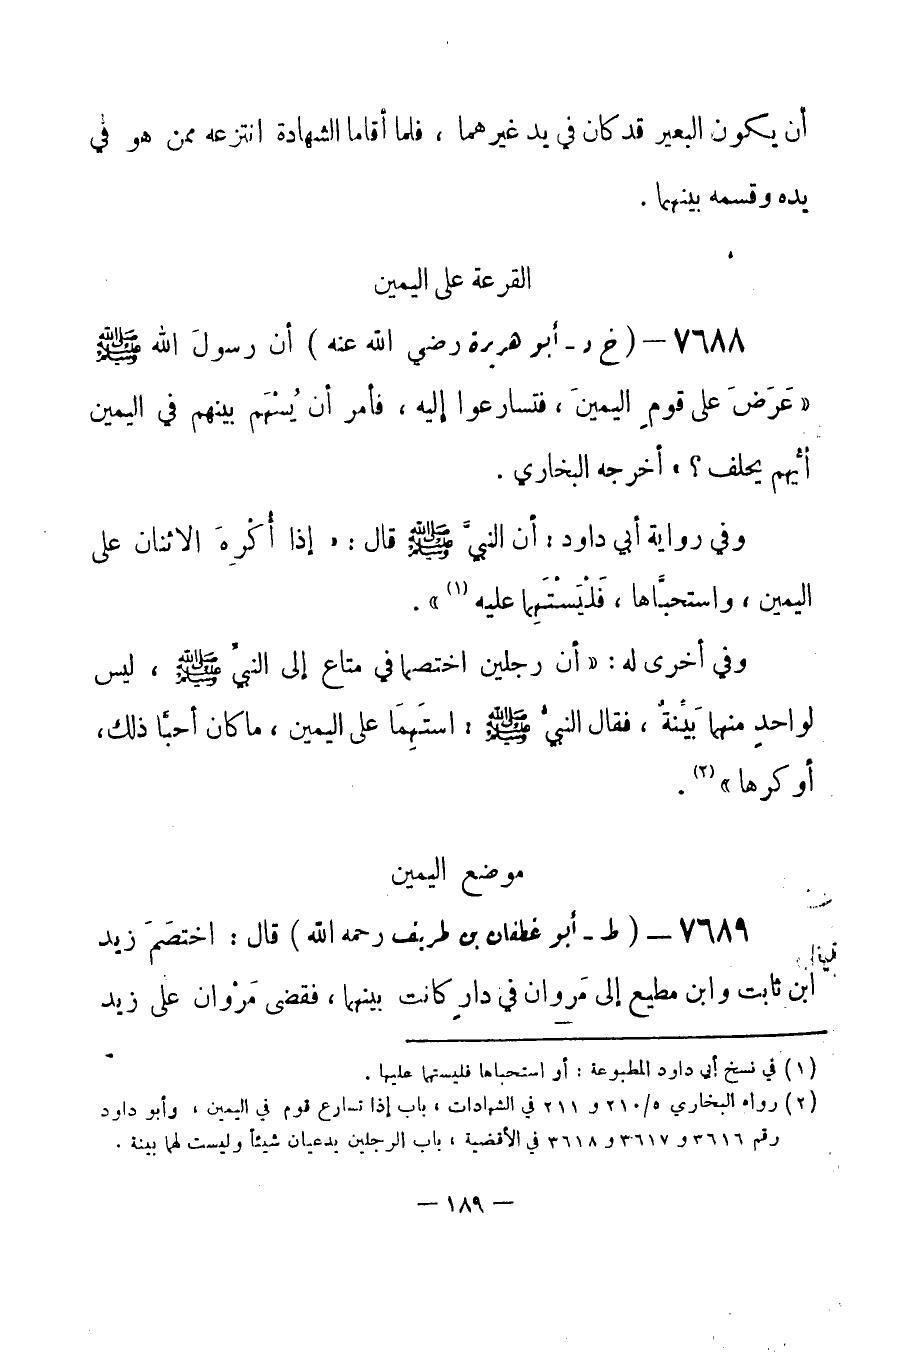 أن يكون البعير قد كان في يد غيرهما ، فلما أقاما الشهادة انتزعه ممن هو في
يده وقسمه بينهما .
القرعة على اليمين
٧٦٨٨ – ( خ د - أبو هريرة رضي الله عنه ) أن رسولَ الله ﷺ
« عَرَضَ على قومٍ اليمينَ ، فتسارعوا إليه ، فأمر أن يُسْهَم بينهم في اليمين
أيُّهم يحلف ؟ » أخرجه البخاري .
وفي رواية أبي داود : أن النبيَّ ﷺ قال : « إذا أُكْرِهَ الاثنان على
اليمين ، واستحبَّاها ، فَلْيَسْتَهِما عليه (١) » .
وفي أخرى له : « أن رجلين اختصما في متاع إلى النبيِّ ﷺ ، ليس
لواحدٍ منهما بَيِّنةٌ ، فقال النبيُّ ﷺ : استَهِمَا على اليمين ، ما كان أحبَّا ذلك ،
أو كرها » (٢) .
موضع اليمين
٧٦٨٩ – ( ط - أبو غطفان بن طريف رحمه الله ) قال : اختصَمَ زيد
ابن ثابت وابن مطيع إلى مَروان في دارٍ كانت بينهما ، فقضى مَرْوان على زيد
(١) في نسخ أبي داود المطبوعة : أو استحباها فليستهما عليها .
(٢) رواه البخاري ٥/٢١٠ و ٢١١ في الشهادات ، باب إذا تسارع قوم في اليمين ، وأبو داود
رقم ٣٦١٦ و ٣٦١٧ و ٣٦١٨ في الأقضية ، باب الرجلين يدعيان شيئاً وليست لهما بينة .
– ١٨٩ –